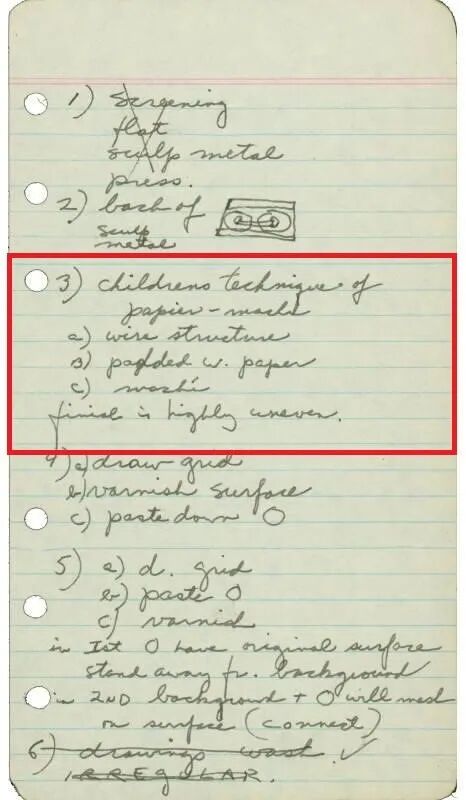 1) Screening
flat
sculp metal
press.
2) back of
sculp
metal
3) childrens technique of
papier-maché
a) wire structure
B) padded w. paper
c) maché
finish is highly uneven.
4) a) draw grid
b) varnish surface
c) paste down O
5) a) d. grid
b) paste O
c) varnish
in Ist O have original surface
stand away fr. background
in 2ND background + O will mesh
on surface (connect)
6) drawings wash. ✓
IRREGULAR.